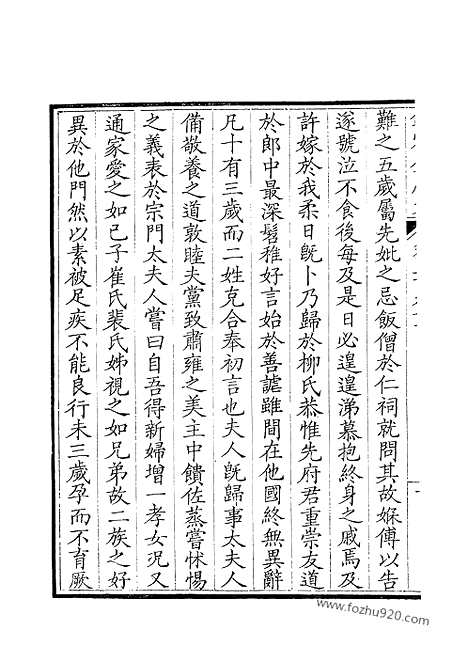 難之五歲屬先妣之忌飯僧於仁祠就問其故媬傅以告
遂號泣不食後每及是日必遑遑涕慕抱終身之戚焉及
許嫁於我柔日既卜乃歸於柳氏恭惟先府君重崇友道
於郎中最深髫稚好言始於善謔雖間在他國終無異辭
凡十有三歲而二姓克合奉初言也夫人既歸事太夫人
備敬養之道敦睦夫黨致肅雍之美主中饋佐蒸嘗怵惕
之義表於宗門太夫人嘗曰自吾得新婦增一孝女況又
通家愛之如己子崔氏裴氏姊視之如兄弟故二族之好
異於他門然以素被足疾不能良行未三歲孕而不育厥
www.fozhu920.com